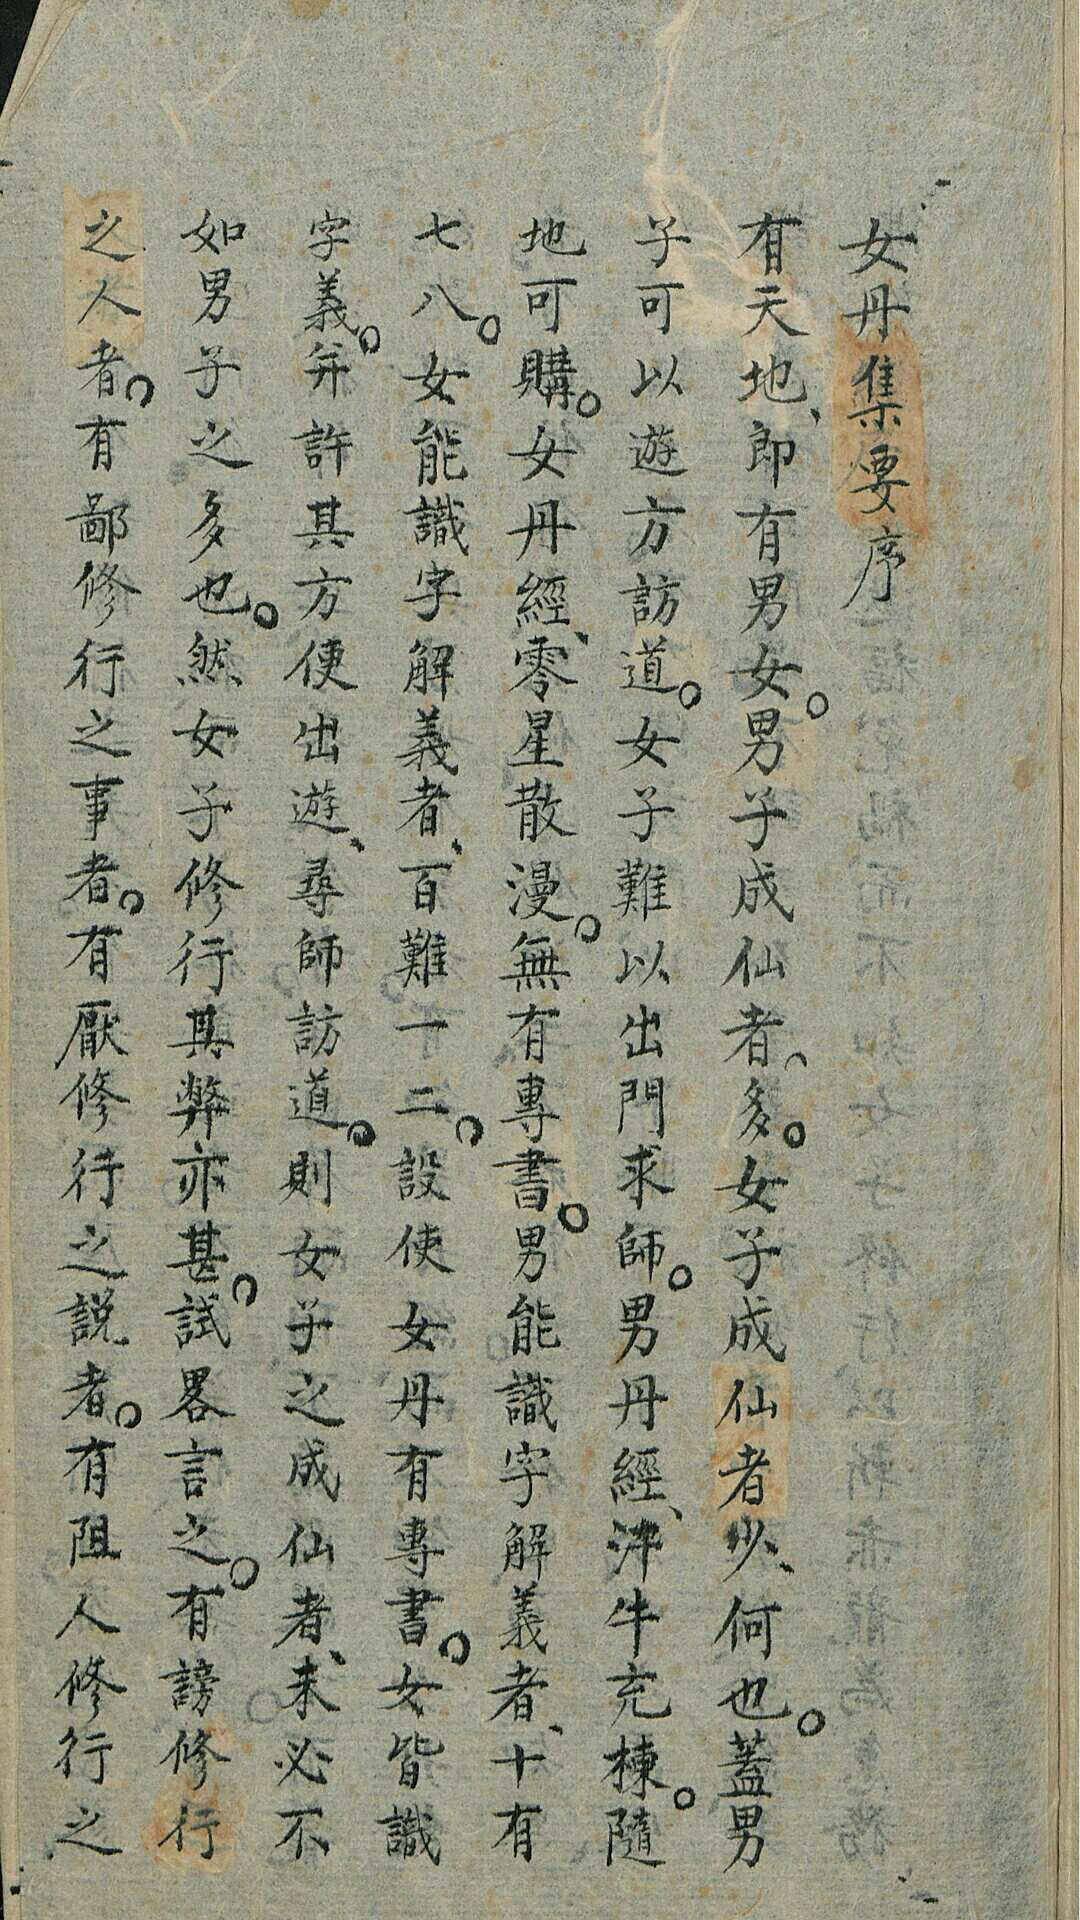 女丹集要序
有天地、即有男女。男子成仙者多。女子成仙者少、何也。蓋男
子可以遊方訪道。女子難以出門求師。男丹經、汗牛充棟。隨
地可購。女丹經、零星散漫。無有專書。男能識字解義者、十有
七八。女能識字解義者、百難一二。設使女丹有專書。女皆識
字義。并許其方便出遊、尋師訪道。則女子之成仙者、未必不
如男子之多也。然女子修行其弊亦甚。試畧言之。有謗修行
之人者。有鄙修行之事者。有厭修行之說者。有阻人修行之